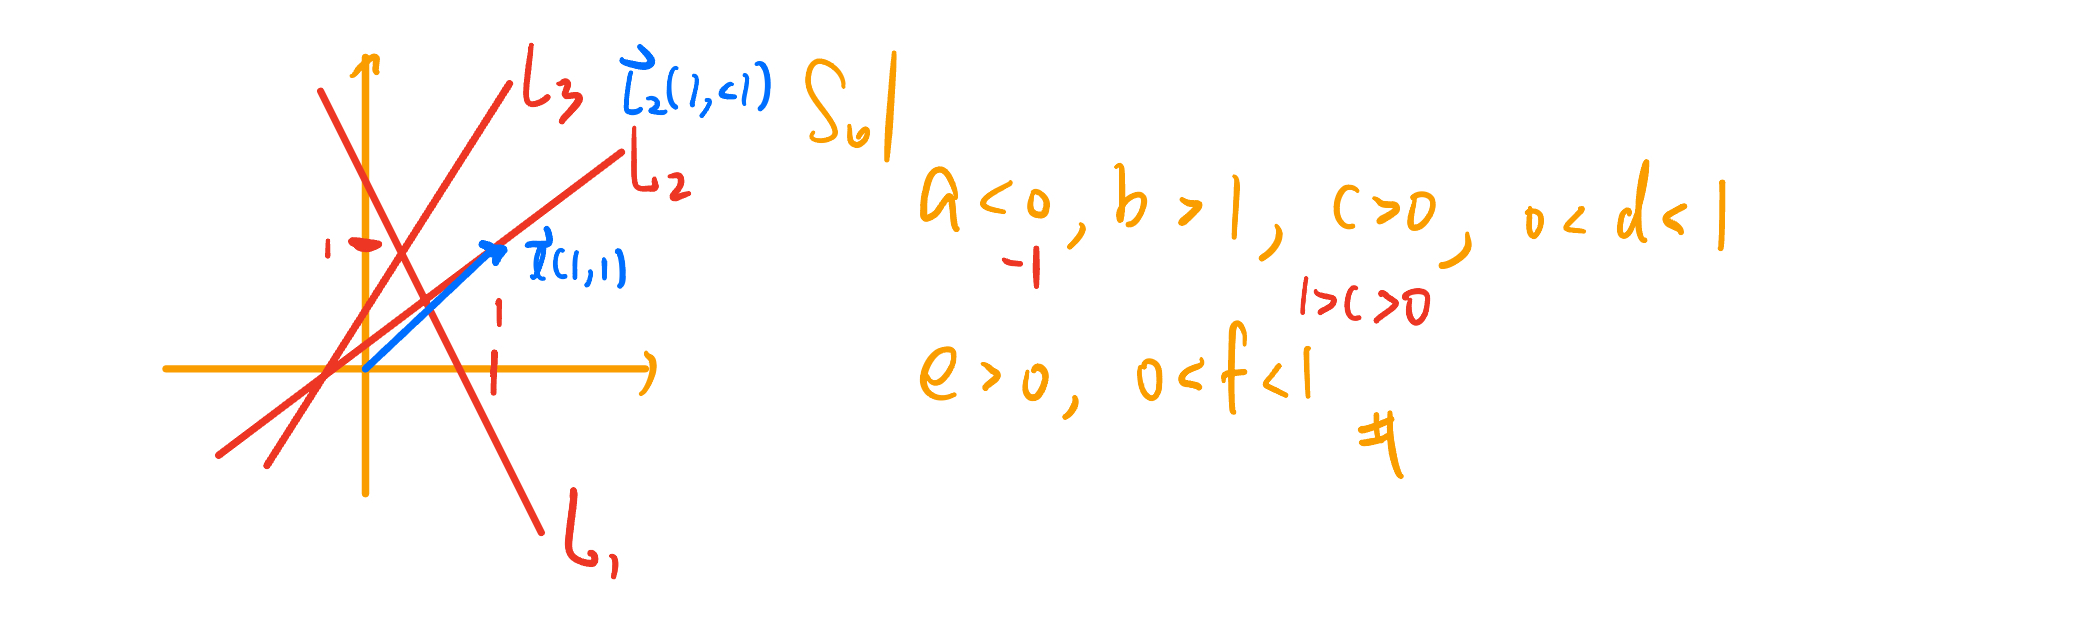 L₃
L⃗₂(1,<1)
L₂
1
l⃗(1,1)
1
L₁
Sol
a<0, b>1, c>0, 0<d<1
-1
1>c>0
e>0, 0<f<1
#